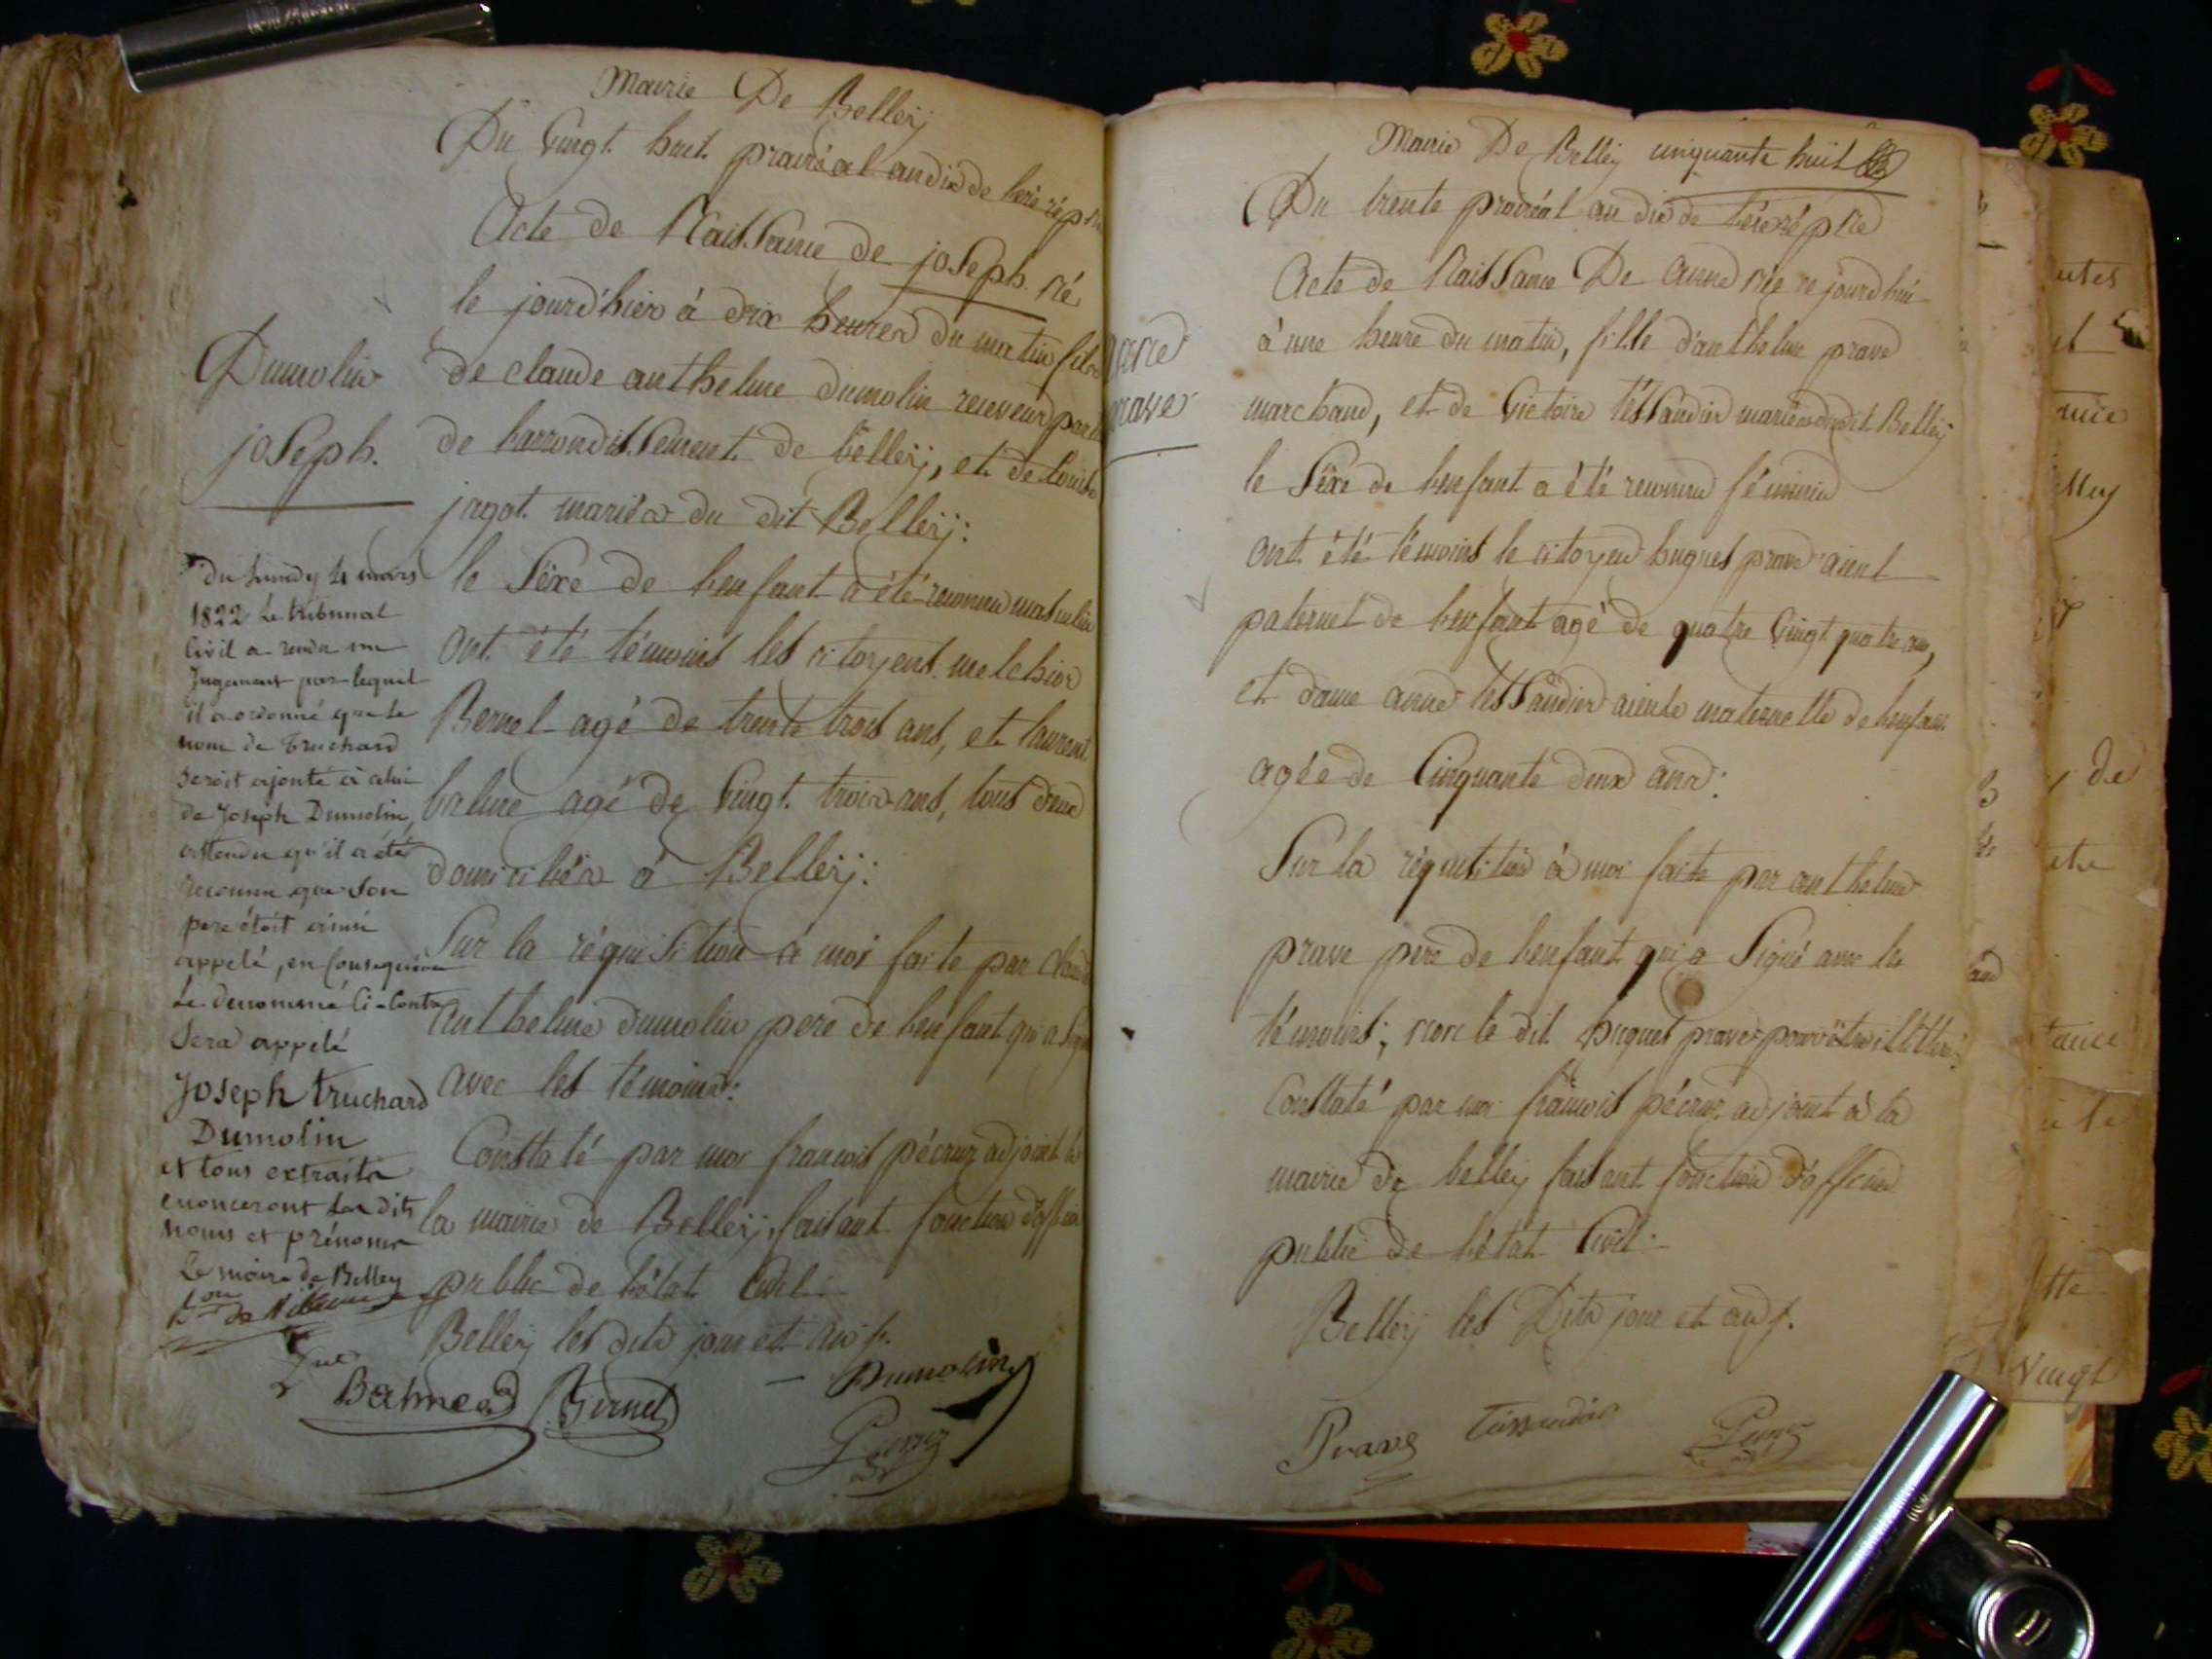 Mairie De Belleÿ
Du Vingt huit prairéal an dix de l'ere répne
Acte de NaisSance de joSeph né
le jourd'hier à dix heures du matin fils
Dumolin
joSeph.
de claude anthelme dumolin receveur par
de l'arrondisSement de belleÿ, et de louise
jagot mariés du dit Belleÿ:
le Séxe de l'enfant a été reconnu masculin
ont été témoins les citoyens melchior
Bernel agé de trente trois ans, et laurent
balme agé de Vingt trois ans, tous deux
domiciliés à Belleÿ:
Sur la réquiSition à moi faite par claude
anthelme dumolin pere de l'enfant qui a Signé
avec les témoins:
Constaté par moi francois pécruz adjoint à
la mairie de Belleÿ, faisant fonction d'officier
public de l'état Civil:
Belleÿ les dits jour et an
Balme Bernel Dumolin
du lundy 4 mars
1822 Le tribunal
Civil a rendu un
Jugement par lequel
il a ordonné que le
nom de Truchard
seroit ajouté à celui
de Joseph Dumolin,
attendu qu'il a été
reconnu que Son
pere étoit ainsi
appelé, en Consequence
Le denommé Ci-Contre
Sera appelé
Joseph truchard
Dumolin
et tous extraits
enonceront les dits
noms et prénoms
Le maire de Belley
Mairie De Belleÿ cinquante huit
Du trente prairéal an dix de l'ére répne
Acte de NaisSance De anne née ce jourd'hui
à une heure du matin, fille d'anthelme prave
anne
prave
marchand, et de Victoire tésSandier mariés du dit Belleÿ
le Séxe de l'enfant a été reconnu féminin
ont été témoins le citoyen hugues prave aieul
paternel de l'enfant agé de quatre Vingt quatre ans,
et dame anne tesSandier aieule maternelle de l'enfant
agée de Cinquante deux ans:
Sur la réquisition à moi faite par anthelme
prave pere de l'enfant qui a Signé avec les
témoins; non le dit hugues prave pour être illitéré:
Constaté par moi francois pécruz adjoint à la
mairie de belleÿ faisant fonction d'officier
public de l'état Civil:
Belleÿ les Dits jour et an
Prave Tissandier
utes
et
de
ete
Vingt